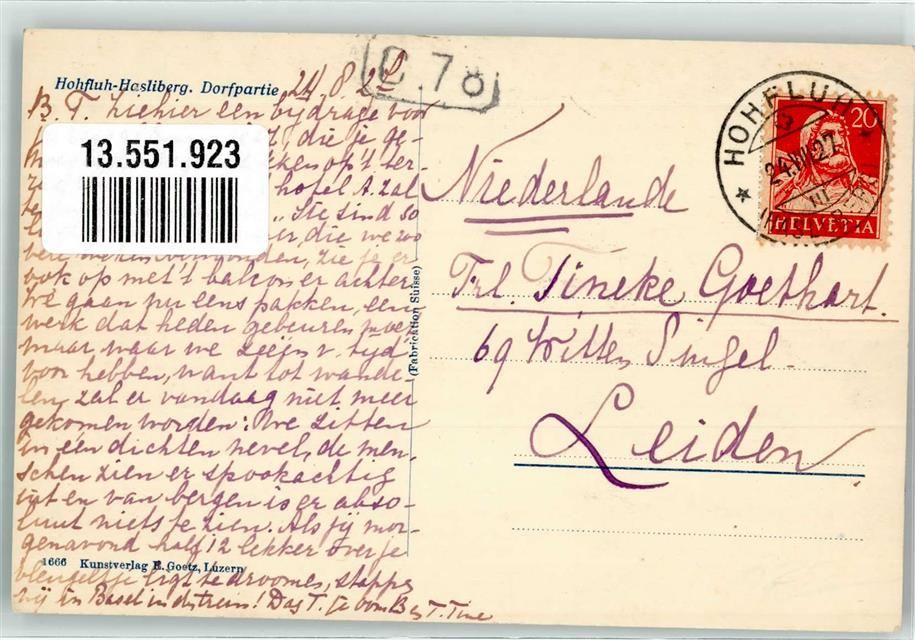 Hohfluh-Hasliberg. Dorfpartie
24.8.27
C. 78
B. T. hiehier een bijdrage voor
die je ge-
op't ter-
hotel A. zal
zijn so
die we zoo
13.551.923
zie je er
ook op met't balcon er achter
We gaan nu eens pakken, een
werk dat heden gebeuren moet
maar waar we zeeën v. tijd
voor hebben, want tot wande-
len zal er vandaag niet meer
gekomen worden: We zitten
in een dichten nevel, de men-
schen zien er spookachtig
uit en van bergen is er abso-
luut niets te zien. Als jij mor-
genavond half 12 lekker over je
ligt te droomen, stappen
wij in Basel in d trein! Dag T.
1666 Kunstverlag E. Goetz, Luzern
(Fabrication Suisse)
HOHFLUH
24.VIII.27
20
HELVETIA
Niederlande
Frl. Tineke Goethart.
69 Witten Singel.
Leiden